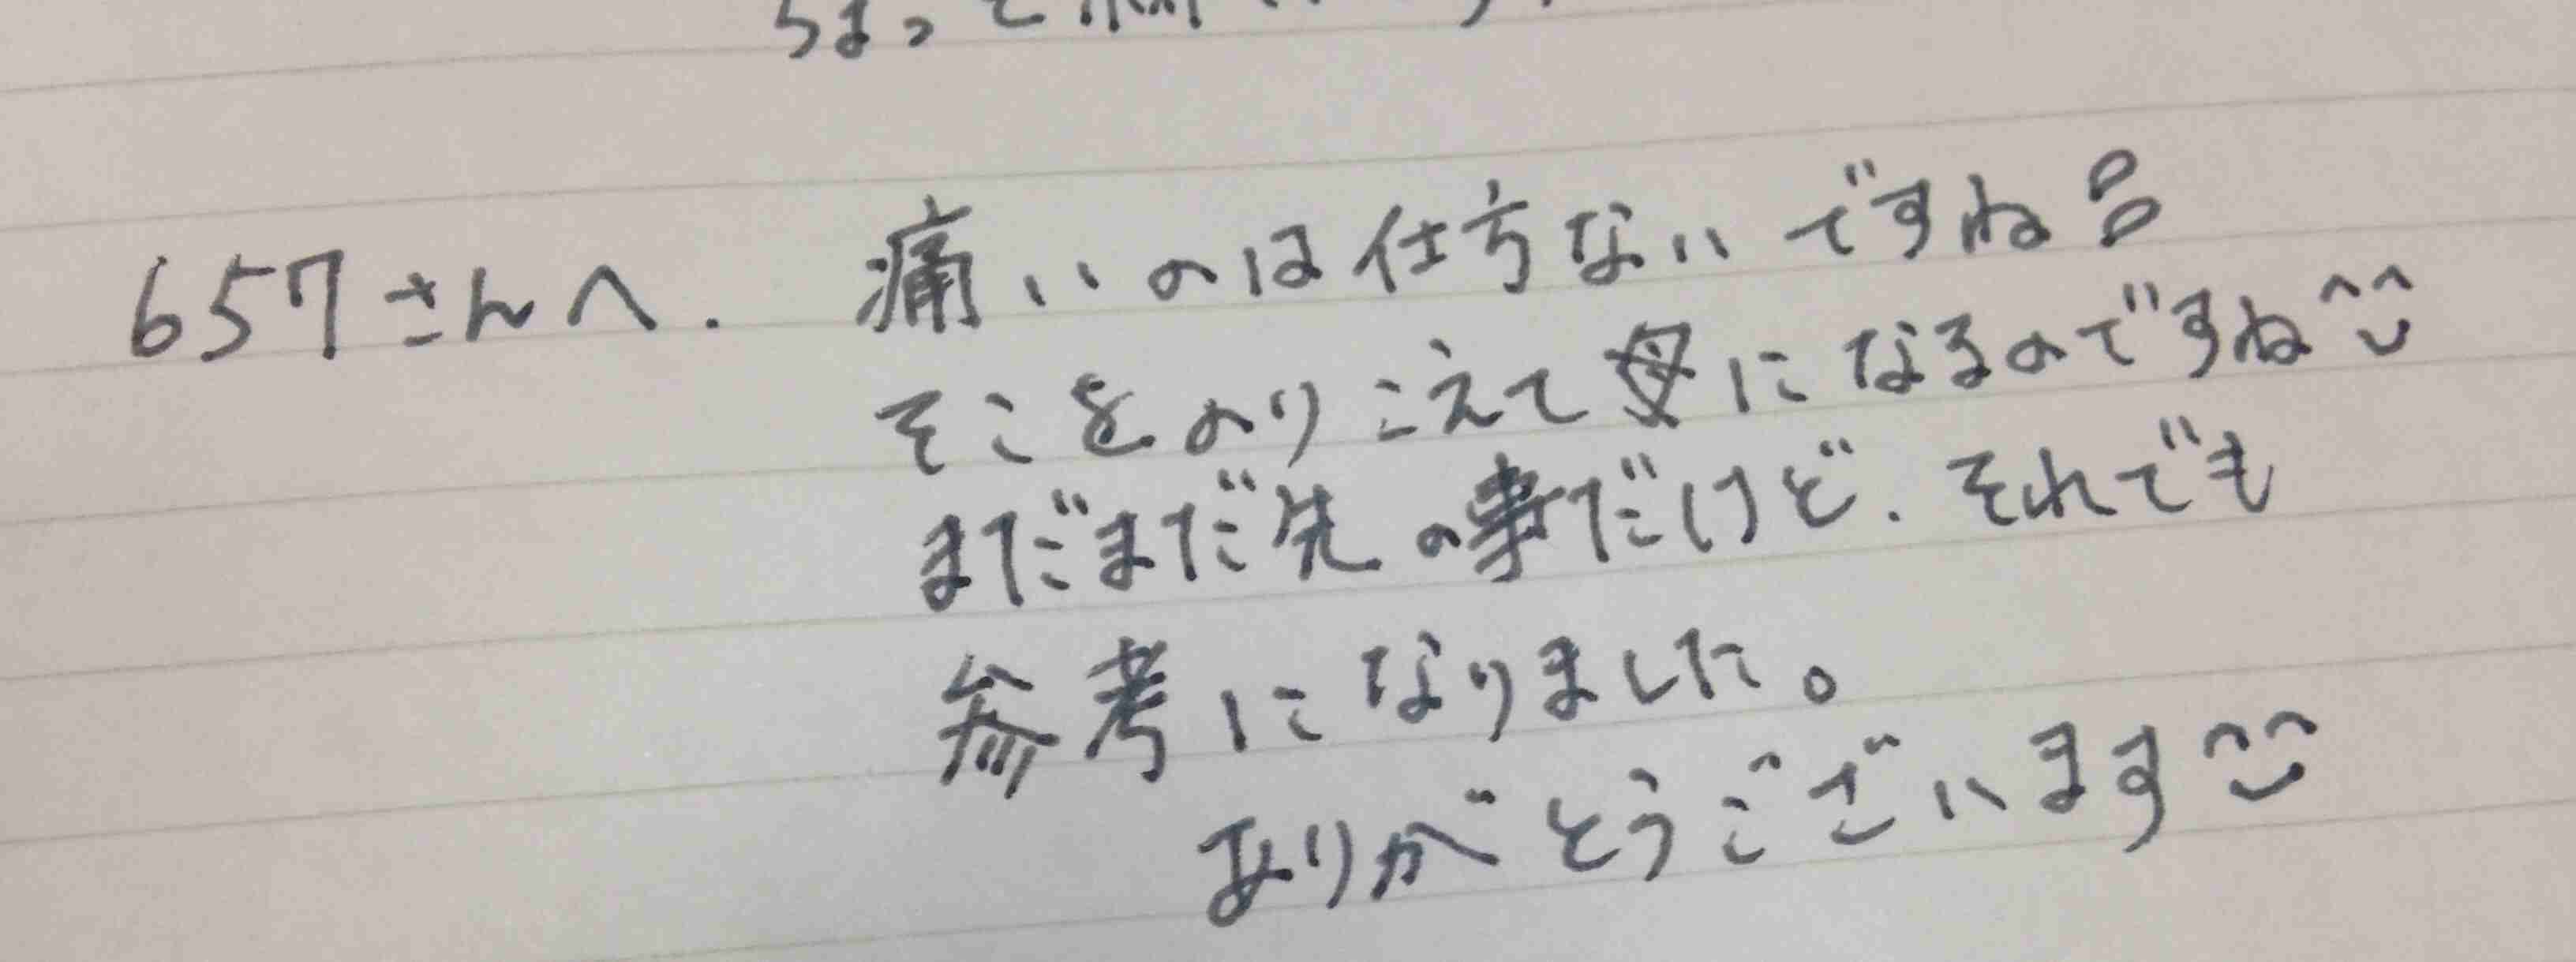 657さんへ. 痛いのは仕方ないですね
そこをのりこえて母になるのですね^^
まだまだ先の事だけど. それでも
参考になりました。
ありがとうございます^^